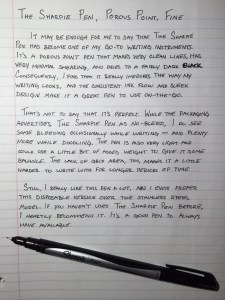 The Sharpie Pen, Porous Point, Fine
It may be enough for me to say that The Sharpie
Pen has become one of my go-to writing instruments.
It's a porous point pen that makes very clean lines, has
very minimal smearing, and dries to a fairly dark black.
Consequently, I find that it really improves the way my
writing looks, and the consistent ink flow and sleek
design make it a great pen to use on-the-go.
That's not to say that it's perfect. While the packaging
advertises The Sharpie Pen as no-bleed, I do see
some bleeding occasionally while writing — and plenty
more while doodling. The pen is also very light and
could use a little bit of added weight to give it some
balance. The lack of grip area, too, makes it a little
harder to write with for longer periods of time.
Still, I really like this pen a lot, and I even prefer
this disposable version over the stainless steel
model. If you haven't used The Sharpie Pen before,
I heartily recommend it. It's a good pen to always
have available.